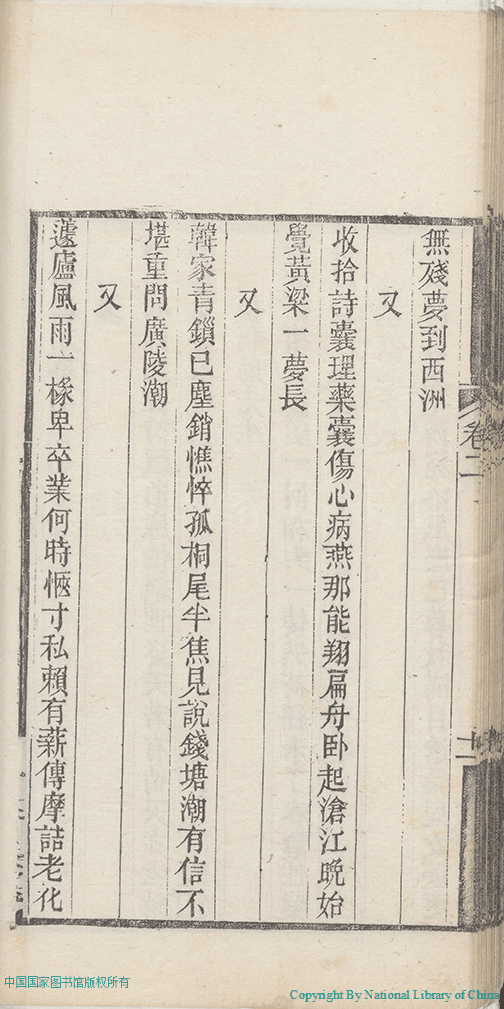 無殘夢到西洲
又
收拾詩囊理藥囊傷心病燕那能翔扁舟卧起滄江晚始
覺黃梁一夢長
又
韓家青鎖已塵銷憔悴孤桐尾半焦見說錢塘潮有信不
堪重問廣陵潮
又
蘧廬風雨一椽卑卒業何時愜寸私賴有薪傳摩詰老化
卷二
十一
中国国家图书馆版权所有
Copyright By National Library of China